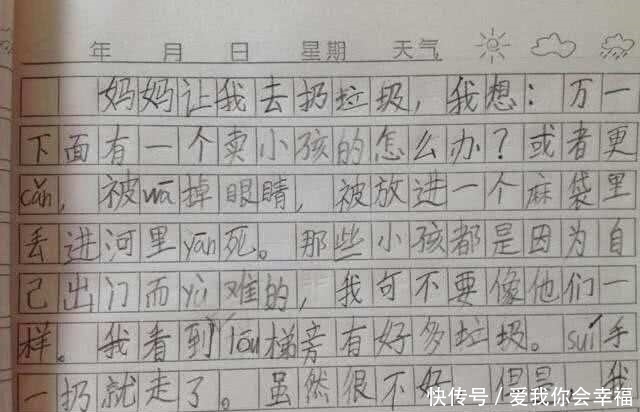 年 月 日 星期 天气
妈妈让我去扔垃圾，我想：万一
下面有一个卖小孩的怎么办？或者更
cǎn，被wā掉眼睛，被放进一个麻袋里
丢进河里yān死。那些小孩都是因为自
己出门而yù难的，我可不要像他们一
样。我看到lóu梯旁有好多垃圾。suí手
一扔就走了。虽然很不好，但是，我
快传号／爱我你会幸福